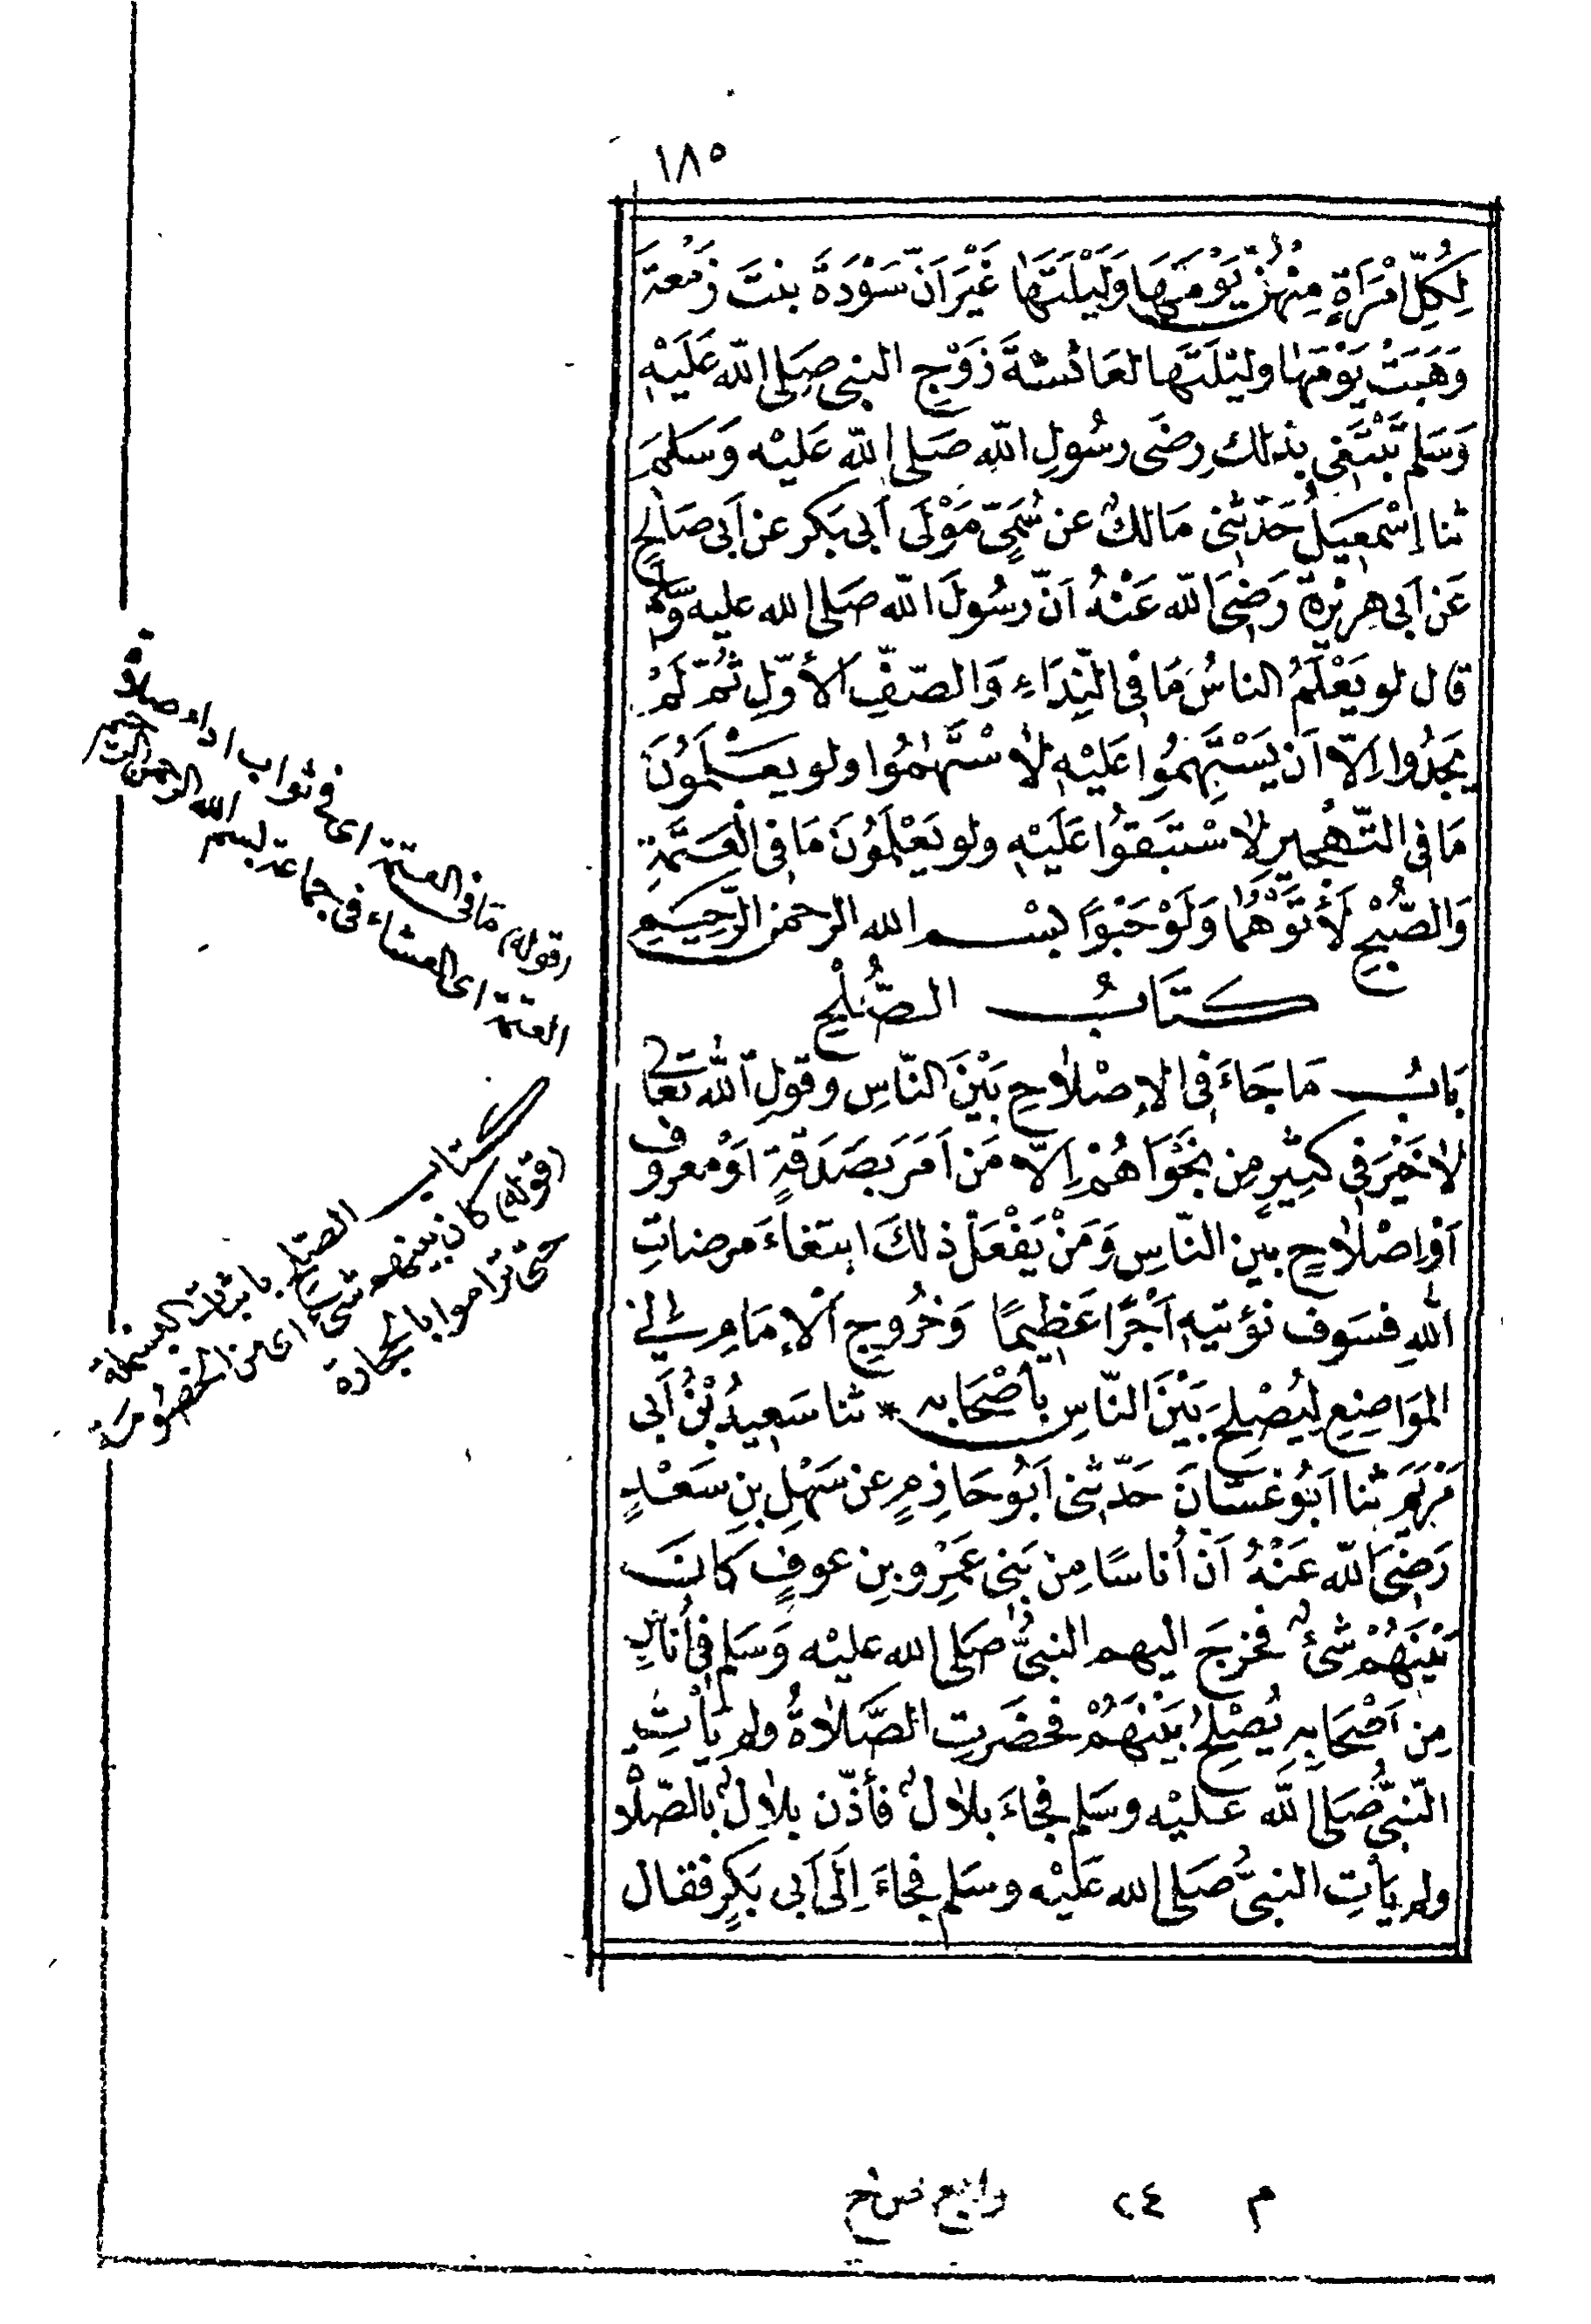 ١٨٥
لِكُلِّ امْرَأَةٍ مِنْهُنَّ يَوْمَهَا وَلَيْلَتَهَا غَيْرَ اَنَّ سَوْدَةَ بنتَ زَمْعَةَ
وَهَبَتْ يَوْمَهَا وليْلَتَهَا لعَائشةَ زَوْجِ النبى صَلى الله عَلَيْهِ
وَسَلم تَبْتَغِى بذلك رِضَى رسُولِ اللهِ صَلى الله عَليْه وَسَلمَ
ثنا اِسْمعِيلُ حَدّثنى مَالكٌ عن سُمَىٍّ مَوْلَى أبى بَكر عن أبى صَالحٍ
عَن اَبى هريْرة رَضِىَ الله عَنْهُ اَنّ رسُولَ الله صَلى الله عليه وَسَلم
قال لو يَعْلَمُ الناسُ مَا فى النِّدَاءِ وَالصّفِّ الأوّلِ ثُمّ لَمْ
يَجدُوا اِلاّ اَن يَسْتَهِمُوا عَلَيْهِ لاسْتَهَمُوا ولو يعْلَمُونَ
مَا فى التّهْجيرِ لاسْتَبَقوُا عَلَيْهِ ولو يَعْلَمُونَ مَا فى الْعَتَمَةِ
وَالصُّبْحِ لَأَتَوْهُمَا وَلَوْ حَبْوًا بسْم الله الرحمن الرّحِيمِ
كتَابُ الصُّلْحِ
بَابُ مَا جَاءَ فى الإصْلاحِ بَيْنَ النّاسِ وقولِ الله تعَالى
لا خَيْرَ فِى كثِيرٍ مِن نَجْوَاهُمْ اِلاَّ مَن اَمَرَ بصَدَقَةٍ اَوْ معروفٍ
اَوْ اِصْلاحٍ بين النّاسِ وَمَنْ يَفْعَلْ ذلكَ ابتغاءَ مرضاتِ
اللهِ فسَوف نؤتيهِ اَجْرًا عَظِيمًا وَخُروجِ الإمَامِ إلى
المَوَاضِعِ لِيُصْلِحَ بَيْنَ النّاسِ بأصْحَابه * ثنا سَعِيدُ بْنُ اَبى
مَرْيَمَ ثنا اَبُو غسّانَ حَدّثنى اَبُو حَازِمٍ عن سَهْلِ بنِ سَعْدٍ
رَضِىَ الله عَنْهُ اَن اُناسًا مِن بَنى عَمْرِو بنِ عوفٍ كَانَ
بَيْنَهُمْ شَىْءٌ فخرجَ اليهم النبىُّ صَلى الله عليْه وَسَلم فى أُناسٍ
مِن اَصْحَابِهِ يُصْلِحُ بَيْنَهُمْ فحَضَرتِ الصَّلاةُ ولم يَأْتِ
النّبىُّ صَلى الله عليْه وسَلم فجَاءَ بلالٌ فأذّن بلالٌ بالصّلاة
ولم يَأتِ النبىُّ صَلى الله عَلَيْه وسَلم فجَاءَ اِلَى اَبى بَكرٍ فقال
(قوله مَا فى العتمة) اى فى ثواب اداء صلاة
العتمة اى العشاء فى جماعة بسم الله الرحمن الرحيم
كتاب الصلح باثبات البسملة
(قوله كان بينهم شىء) اى من الخصومة
حتى تراموا بالحجارة
م ٢٤ رابع ص خ